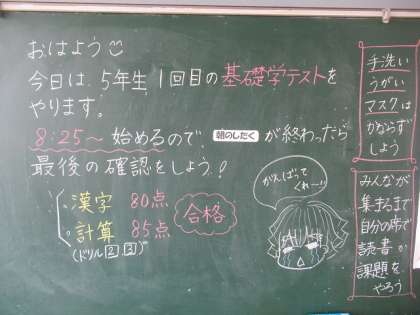 おはよう
今日は、5年生 1回目の基礎学テストを
やります。
8:25～ 始めるので、朝のしたく が終わったら
最後の確認をしよう！
漢字 80点
計算 85点
(ドリル②,③)
合格
がんばって
くれー!!
手洗い
うがい
マスクは
かならず
しよう
みんなが
集まるまで
自分の席で
読書か
課題を
やろう